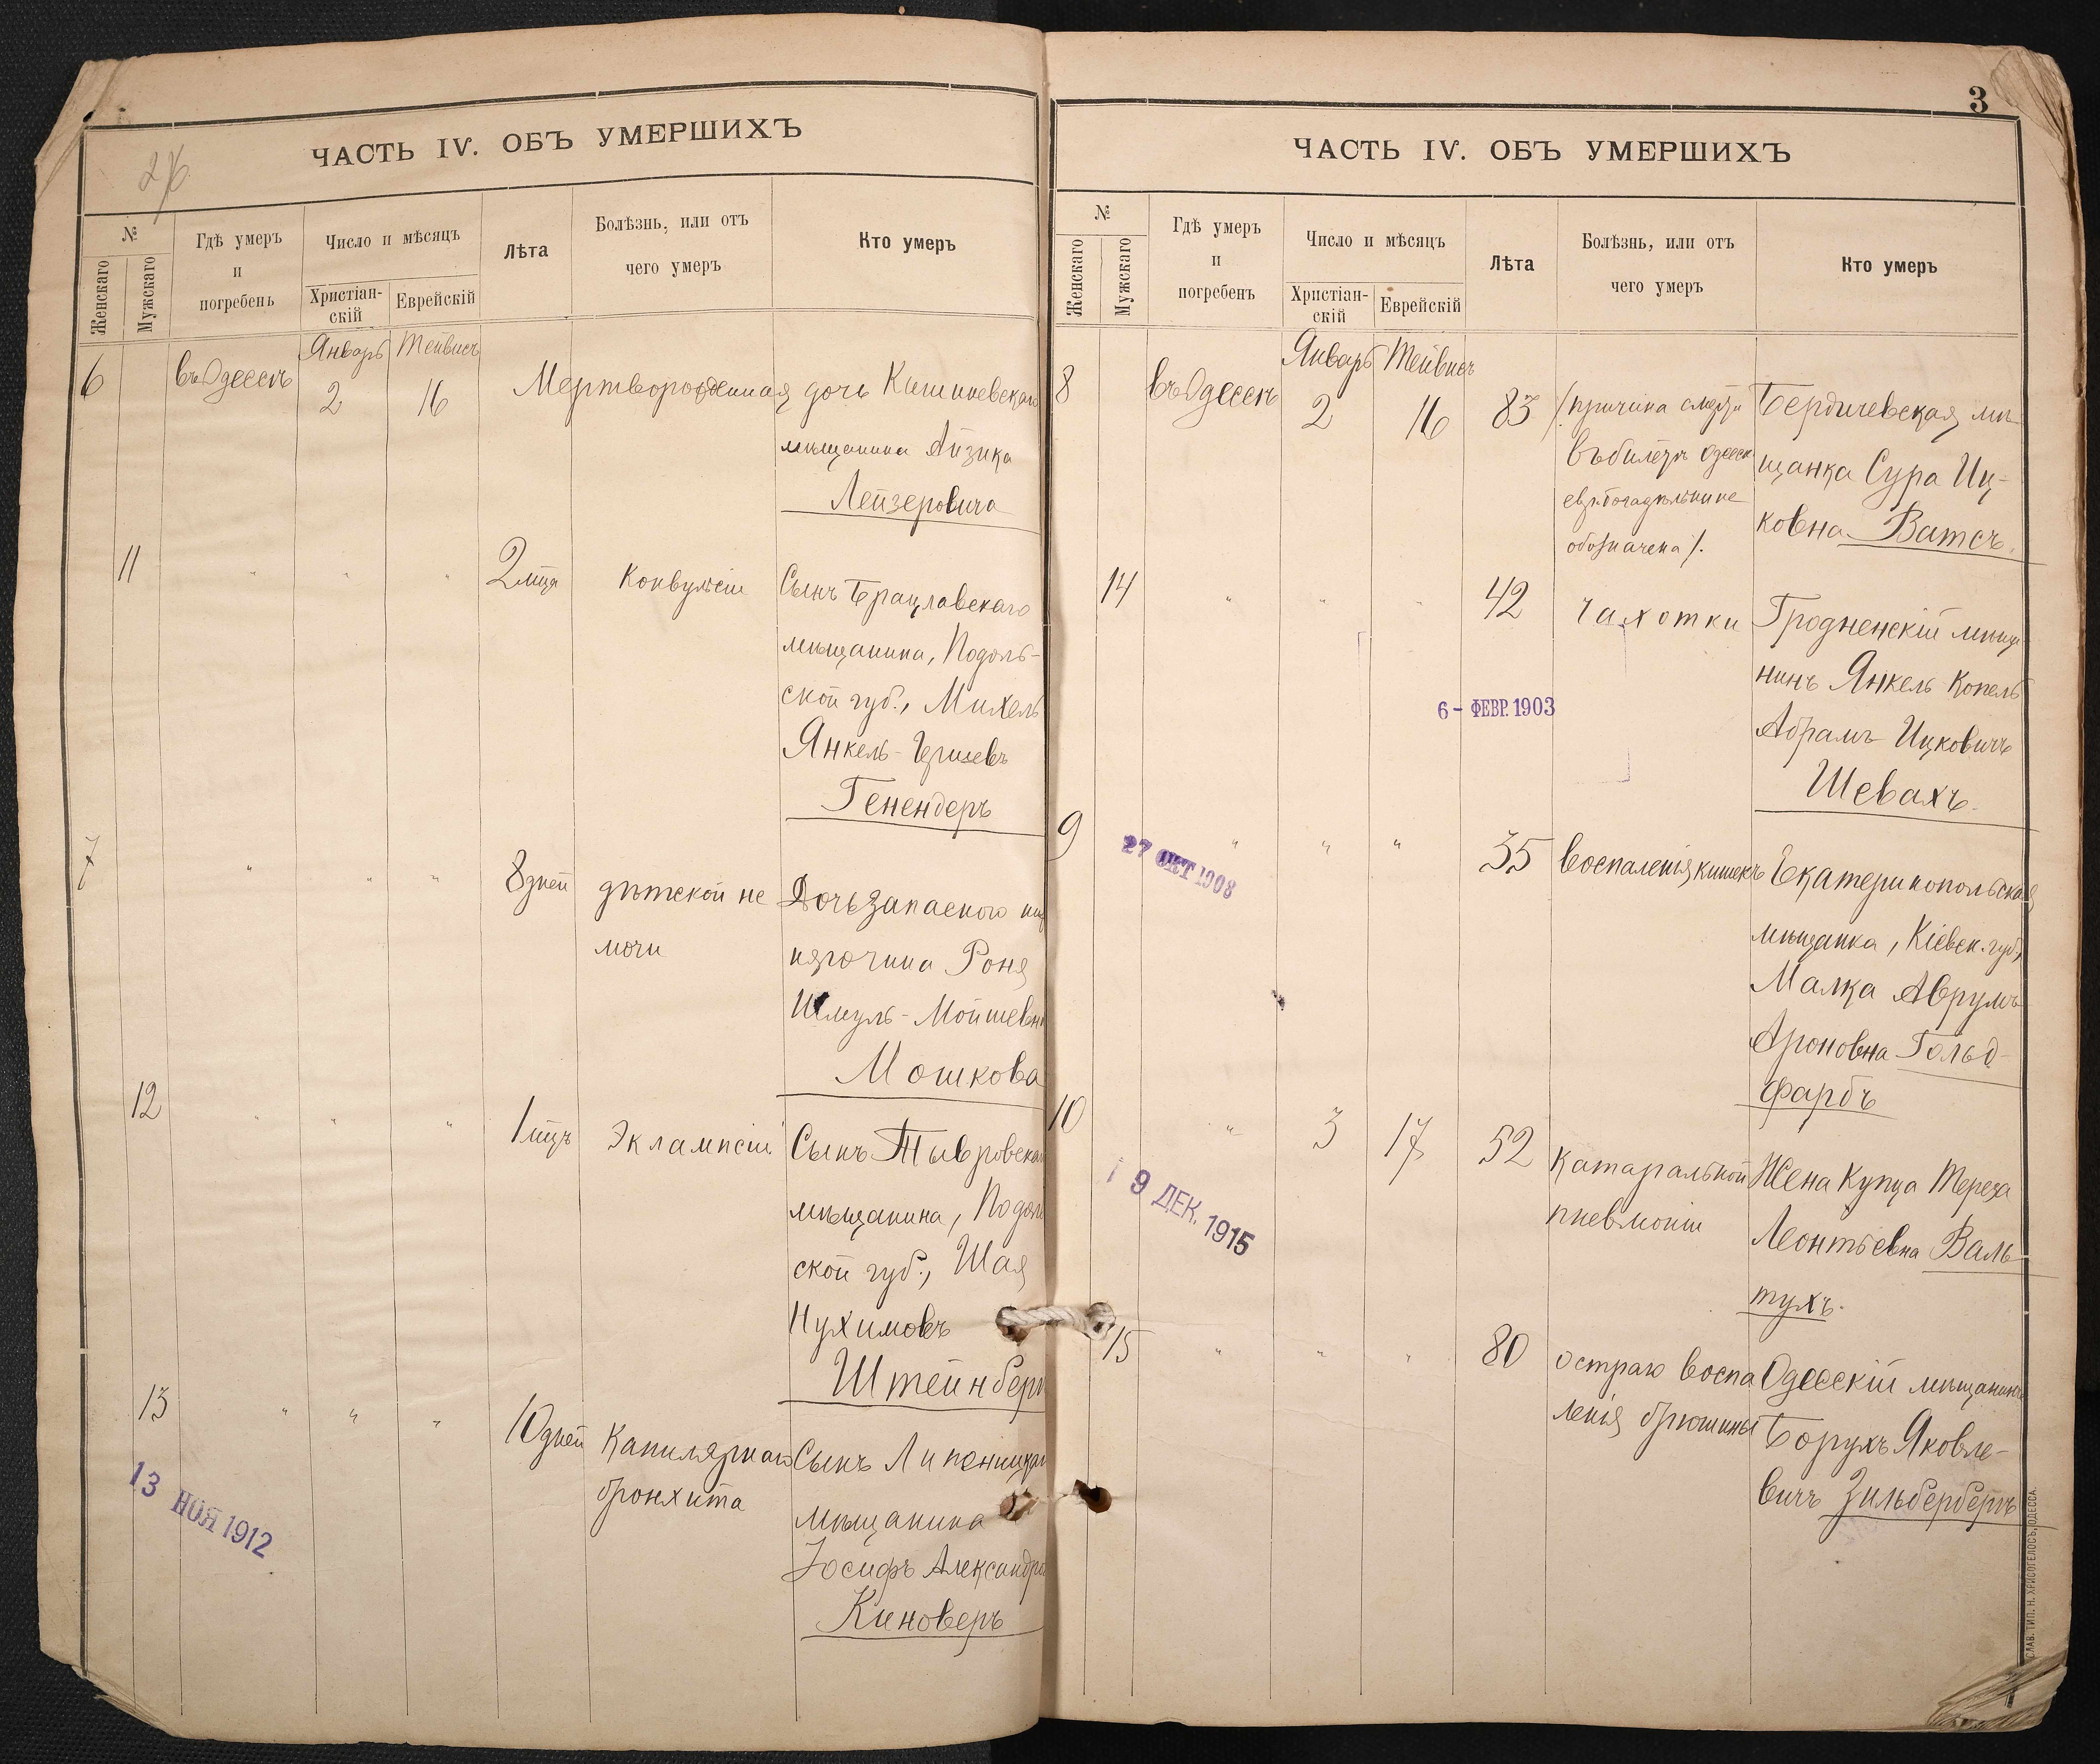 ЧАСТЬ IV. ОБЪ УМЕРШИХЪ
№
Женскаго
Мужскаго
Гдѣ умеръ
и
погребенъ
Число и мѣсяцъ
Христіан-
скій
Еврейскій
Лѣта
Болѣзнь, или отъ
чего умеръ
Кто умеръ
Январь Тейвисъ
6 въ Одессѣ 2 16 Мертворожденная дочь Кишиневскаго
мѣщанина Айзика
Лейзеровича
11 " " " 2 мца Конвульсіи Сынъ Брацлавскаго
мѣщанина, Подоль-
ской губ., Михель
Янкель-Гершевъ
Генендеръ
7 " " " 8 дней дѣтской не Дочь запаснаго
мочи Роня
Шмуль-Мойшевна
Мошкова
12 " " " 1 мцъ Эклампсіи Сынъ Тывровска
мѣщанина, Подоль
ской губ., Шая
Нухимовъ
Штейнберг
13 " " " 10 дней Капилярнаго Сынъ
бронхита мѣщанина
Іосифъ Александро
Киноверъ
13 НОЯ 1912
3
ЧАСТЬ IV. ОБЪ УМЕРШИХЪ
№
Женскаго
Мужскаго
Гдѣ умеръ
и
погребенъ
Число и мѣсяцъ
Христіан-
скій
Еврейскій
Лѣта
Болѣзнь, или отъ
чего умеръ
Кто умеръ
Январь Тейвисъ
8 въ Одессѣ 2 16 83 /причина смерти Бердичевская мѣ-
въ билетѣ Одесск щанка Сура Иц-
евр. богадѣльни не ковна Ватсъ.
обозначена/.
14 " " " 42 чахотки Гродненскій мѣща-
нинъ Янкель Копель
6 - ФЕВР. 1903
Абрамъ Ицковичъ
Шевахъ.
9 " " " 35 воспаленія кишекъ Екатеринопольская
27 ОКТ 1908
мѣщанка, Кіевск. губ.,
Малка Аврумъ-
Ароновна Гольд-
фарбъ
10 " 3 17 52 катаральной Жена Купца Тереза
пневмоніи Леонтьевна Валь-
9 ДЕК. 1915
тухъ.
15 " " " 80 остраго воспа Одесскій мѣщанинъ
ленія брюшины Борухъ Яковле-
вичъ Зильбербергъ
СЛАВ. ТИП. Н. ХРИСОГЕЛОСЪ, ОДЕССА.